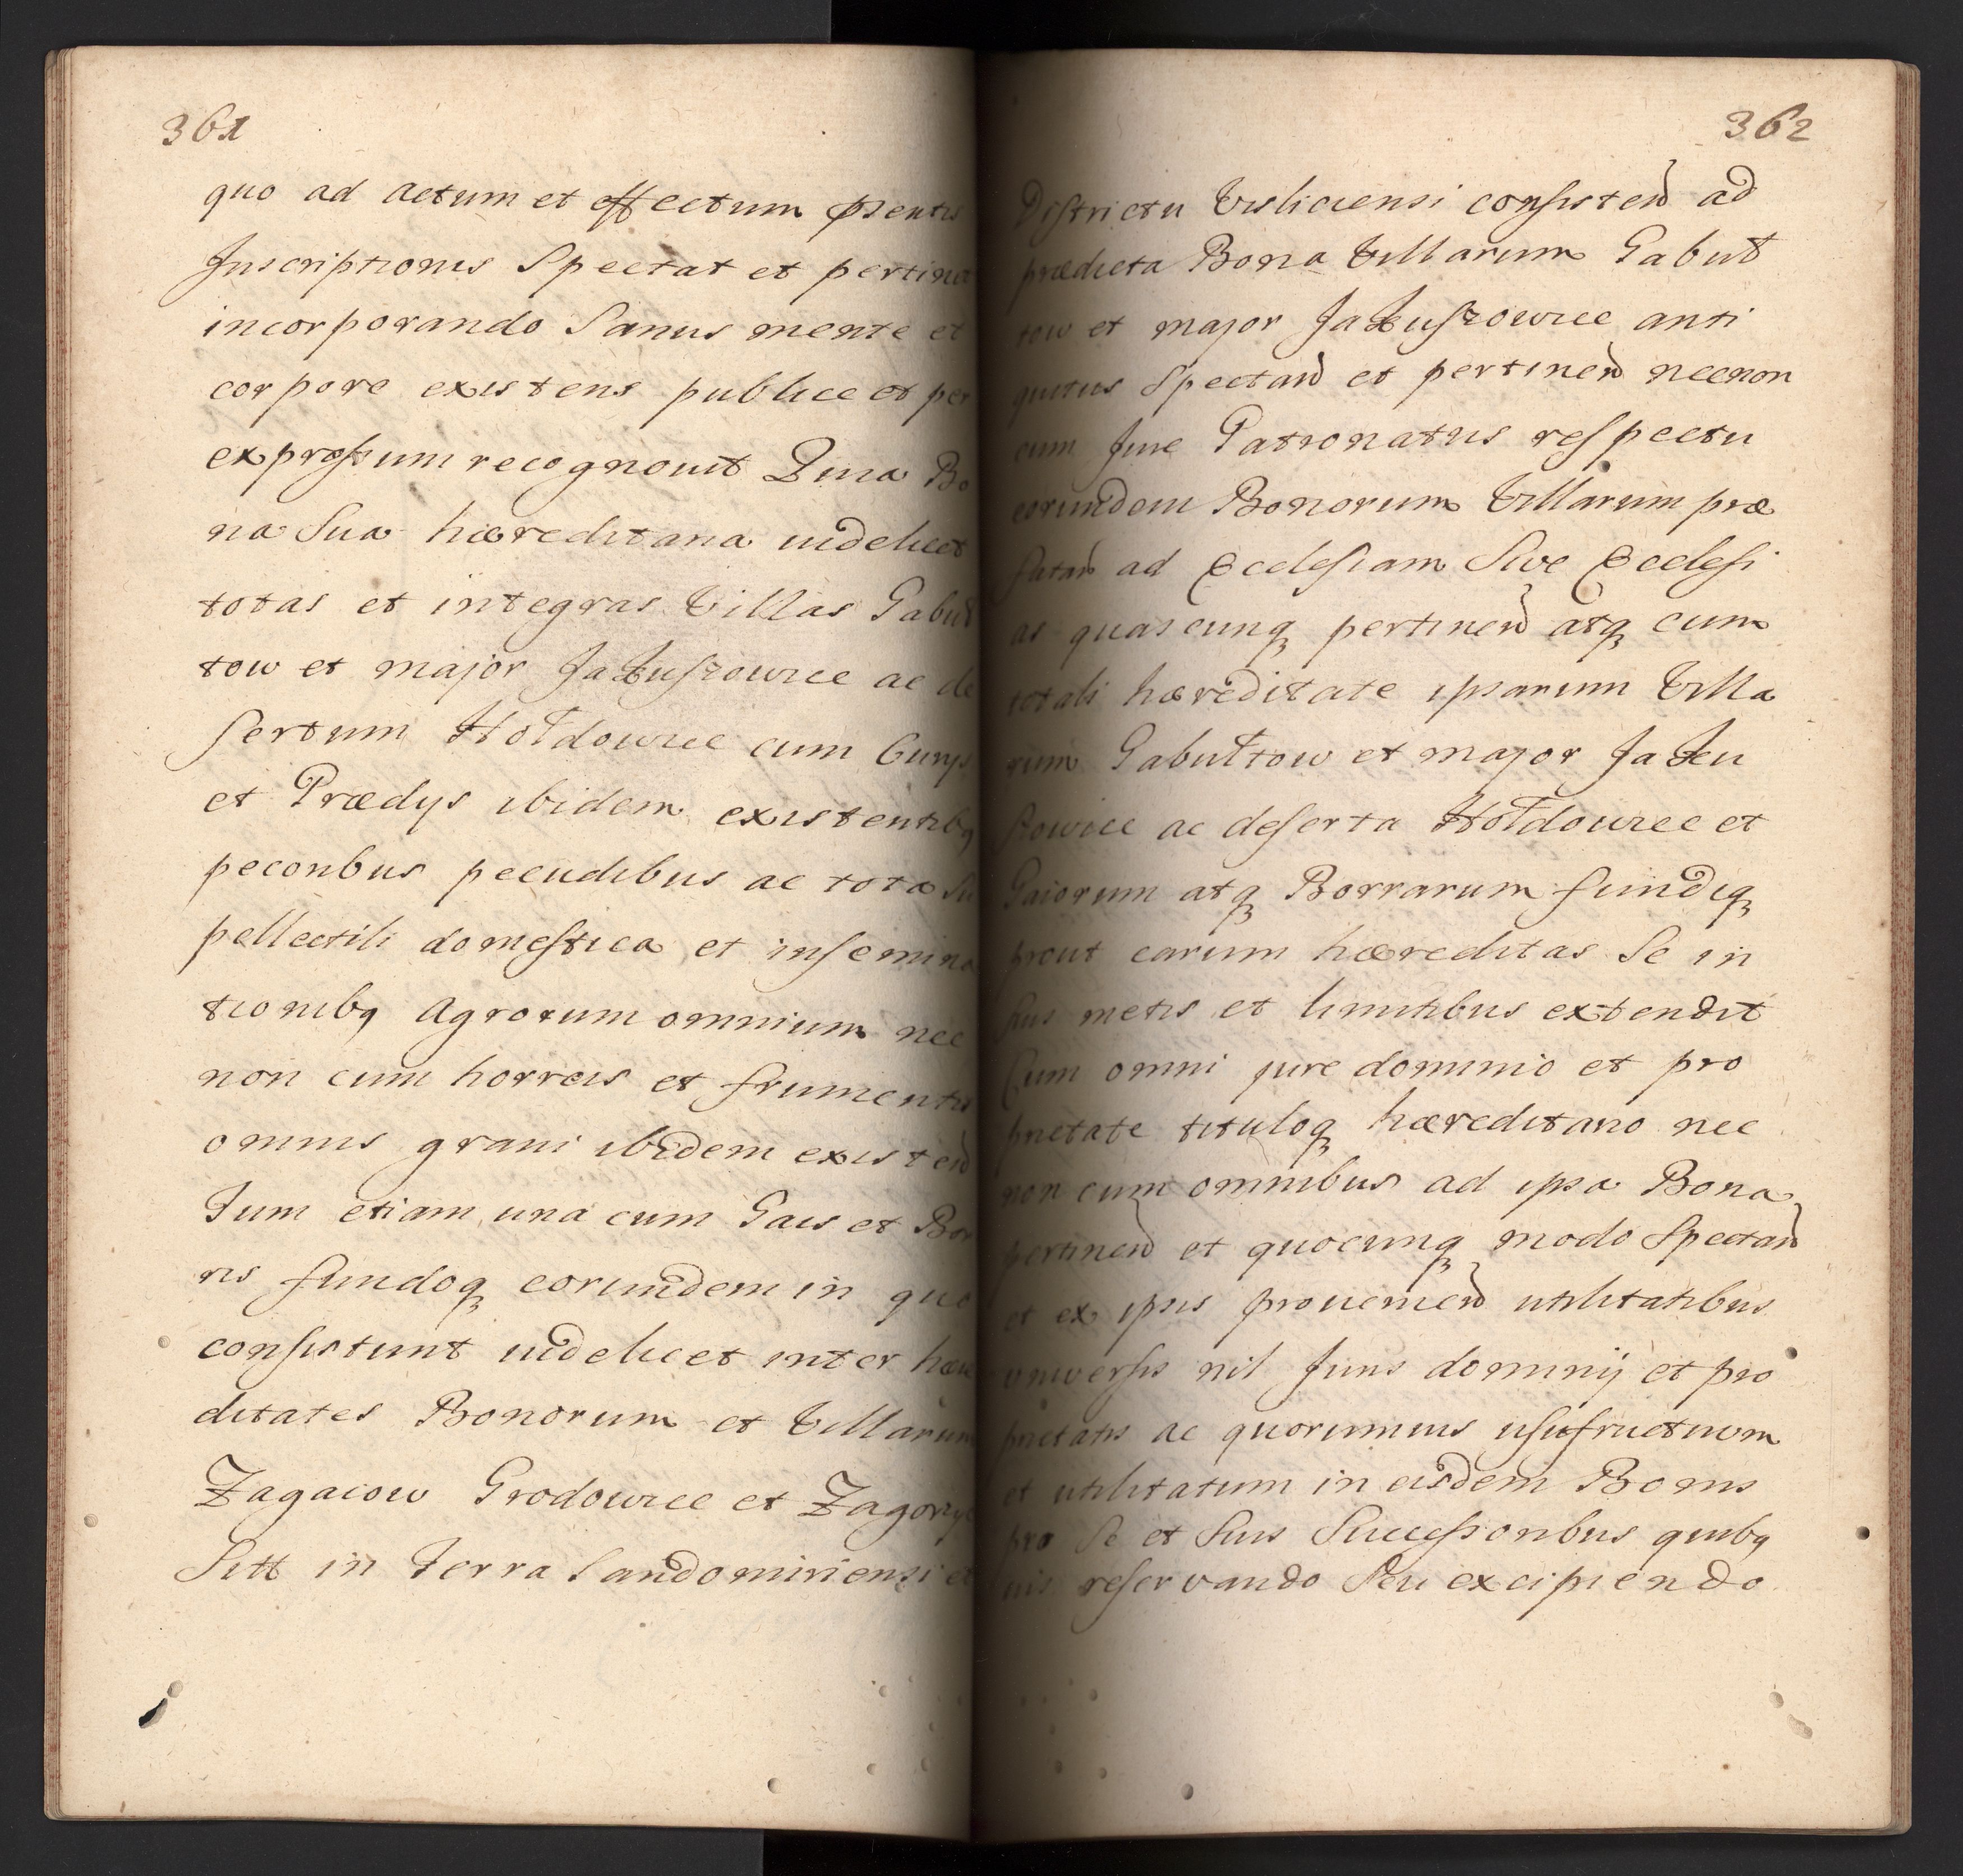 361
quo ad actum et effectum pŝentis
Inscriptionis Spectat et pertinet
incorporando Sanus mente et
corpore existens publice et per
expressum recognovit Quia Bo
na Sua hæreditaria videlicet
totas et integras Villas Gabuł
tow et major Jakuszowice ac de
sertum Hołdowice cum Curijs
et Prædijs ibidem existentibq
pecoribus pecudibus ac tota Su
pellectili domestica et insemina
tionibq Agrorum omnium nec
non cum horreis et frumentis
omnis grani ibidem existen
Tum etiam una cum Gais et Bor
ris fundoq eorundem in quo
consistunt videlicet inter hære
ditates Bonorum et Villarum
Zagaiow Grodowice et Zagorzyc
Sitt in Terra Sandomiriensi et
362
Districtu Visliciensi consisten ad
prædicta Bona Villarum Gabuł
tow et major Jakuszowice anti
quitus Spectan et pertinen necnon
cum Jure Patronatus respectu
eorundem Bonorum Villarum præ
fatar ad Ecclesiam Sive Ecclesi
as quascunq pertinen atq cum
totali hæreditate ipsarum Villa
rum Gabułtow et major Jaku
szowice ac deserta Hołdowice et
Gaiorum atq Borrarum fundiq
prout earum hæreditas Se in
Suis metis et limitibus extendit
Cum omni jure dominio et pro
prietate tituloq hæreditario nec
non cum omnibus ad ipsa Bona
pertinen et quocunq modo Spectan
et ex ipsis provenien utilitatibus
universis nil Juris dominij et pro
prietatis ac quorumuis usufructuum
et utilitatum in eisdem Bonis
pro Se et Suis Successoribus quibq
uis reservando Seu excipiendo